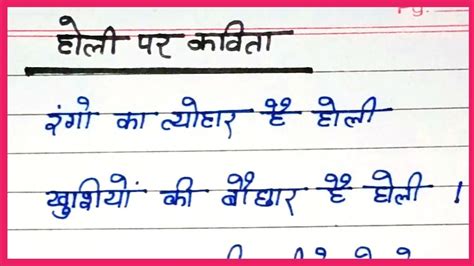 होली पर कविता
रंगो का त्योहार है होली
खुशियों की बौछार है होली ।